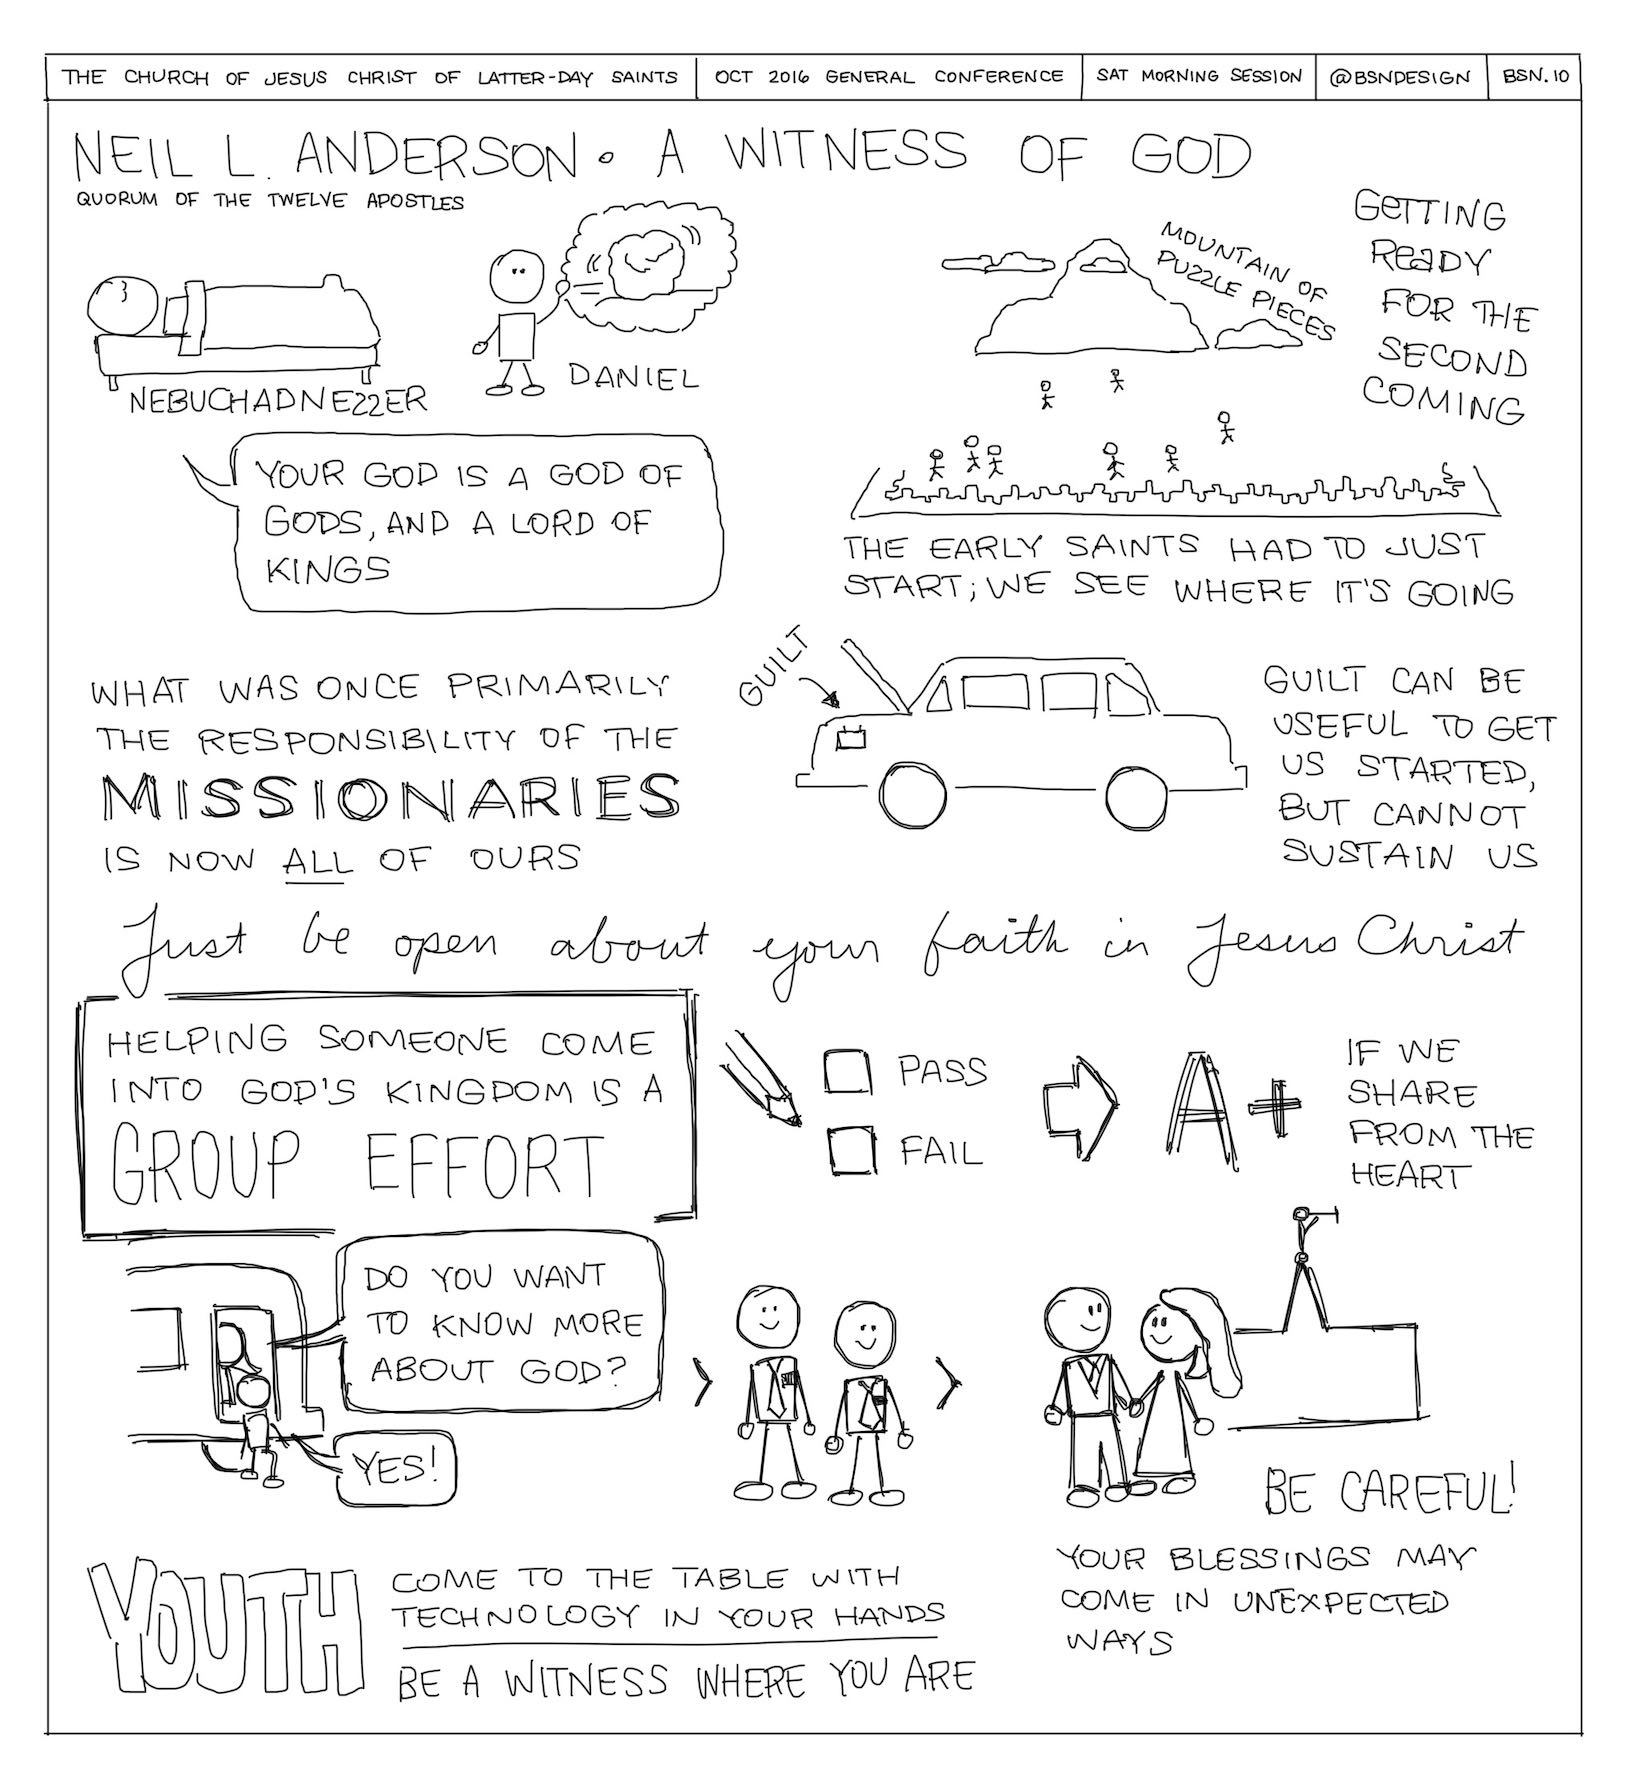 THE CHURCH OF JESUS CHRIST OF LATTER-DAY SAINTS
OCT 2016 GENERAL CONFERENCE
SAT MORNING SESSION
@BSNDESIGN
BSN.IO
NEIL L. ANDERSON • A WITNESS OF GOD
QUORUM OF THE TWELVE APOSTLES
NEBUCHADNEZZER
DANIEL
YOUR GOD IS A GOD OF
GODS, AND A LORD OF
KINGS
MOUNTAIN OF
PUZZLE PIECES
GETTING
READY
FOR THE
SECOND
COMING
THE EARLY SAINTS HAD TO JUST
START; WE SEE WHERE IT'S GOING
WHAT WAS ONCE PRIMARILY
THE RESPONSIBILITY OF THE
MISSIONARIES
IS NOW ALL OF OURS
GUILT
GUILT CAN BE
USEFUL TO GET
US STARTED,
BUT CANNOT
SUSTAIN US
Just be open about your faith in Jesus Christ
HELPING SOMEONE COME
INTO GOD'S KINGDOM IS A
GROUP EFFORT
PASS
FAIL
A+
IF WE
SHARE
FROM THE
HEART
DO YOU WANT
TO KNOW MORE
ABOUT GOD?
YES!
BE CAREFUL!
YOUR BLESSINGS MAY
COME IN UNEXPECTED
WAYS
YOUTH
COME TO THE TABLE WITH
TECHNOLOGY IN YOUR HANDS
BE A WITNESS WHERE YOU ARE